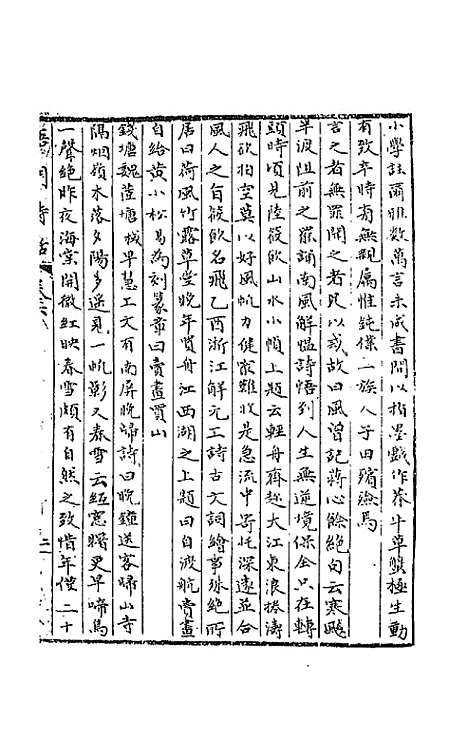 小學註爾雅數萬言未成書間以指墨戲作菜牛草蟲極生動
有致卒時有無親屬惟純儒一族人子田殯焉
言之者無罪聞之者足以戒故曰風曾記蔣心餘絕句云寒颸
半汲阻前之羅誦南風解慍詩悟到人生無逆境保全只在轉
頭時頃見陸筱飲山水小幀上題云輕舟齊趁大江東浪捲濤
飛欲拍空莫以好風帆力健最難收是急流中寄托深遠並合
風人之旨筱飲名飛乙酉浙江解元工詩古文詞繪事殊絕所
居曰荷風竹露草堂晚年買舟江西湖之上題曰自渡航賣畫
自給黃小松易為刻篆章曰賣畫買山
錢塘魏 塘城早慧工文有南屏晚歸詩曰晚鐘送客歸山寺
隔烟嶺木落夕陽多遥見一帆影又春雪云紅窗曙更早啼鳥
一聲絕昨夜海棠開微紅映春雪頗有自然之致惜年僅二十
詩話